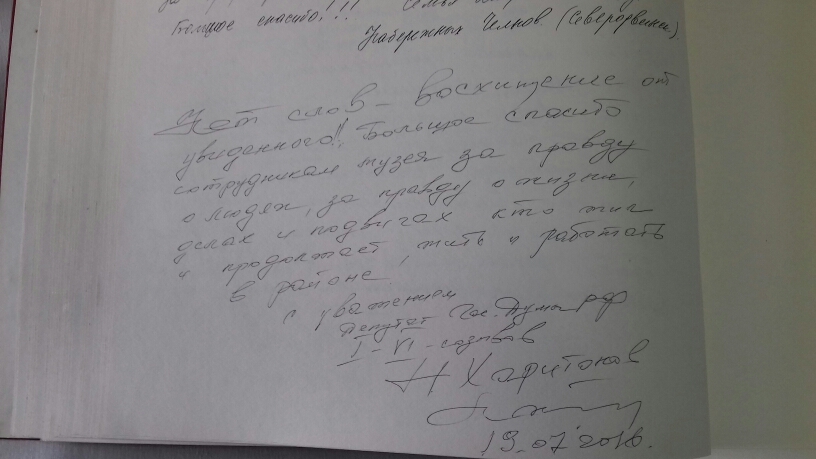 Большое спасибо!!! Семья
Набережных Челнов. (Северодвинск).
Нет слов – восхищение от
увиданного!! Большое спасибо
сотрудникам музея за правду
о людях, за правду о жизни,
делах и подвигах кто жил
и продолжает, жить и работать
в районе.
с уважением
Депутат Гос. Думы РФ
I – VI – созывов
Н Харитонов
19.07.2016.